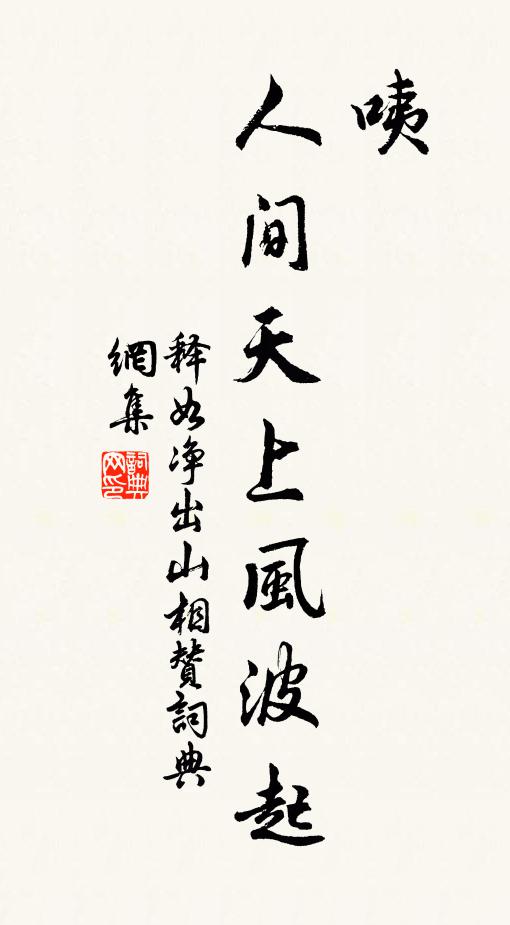 咦
人间天上風波起
释如净出山相赞詞典
網集
詞典
网印